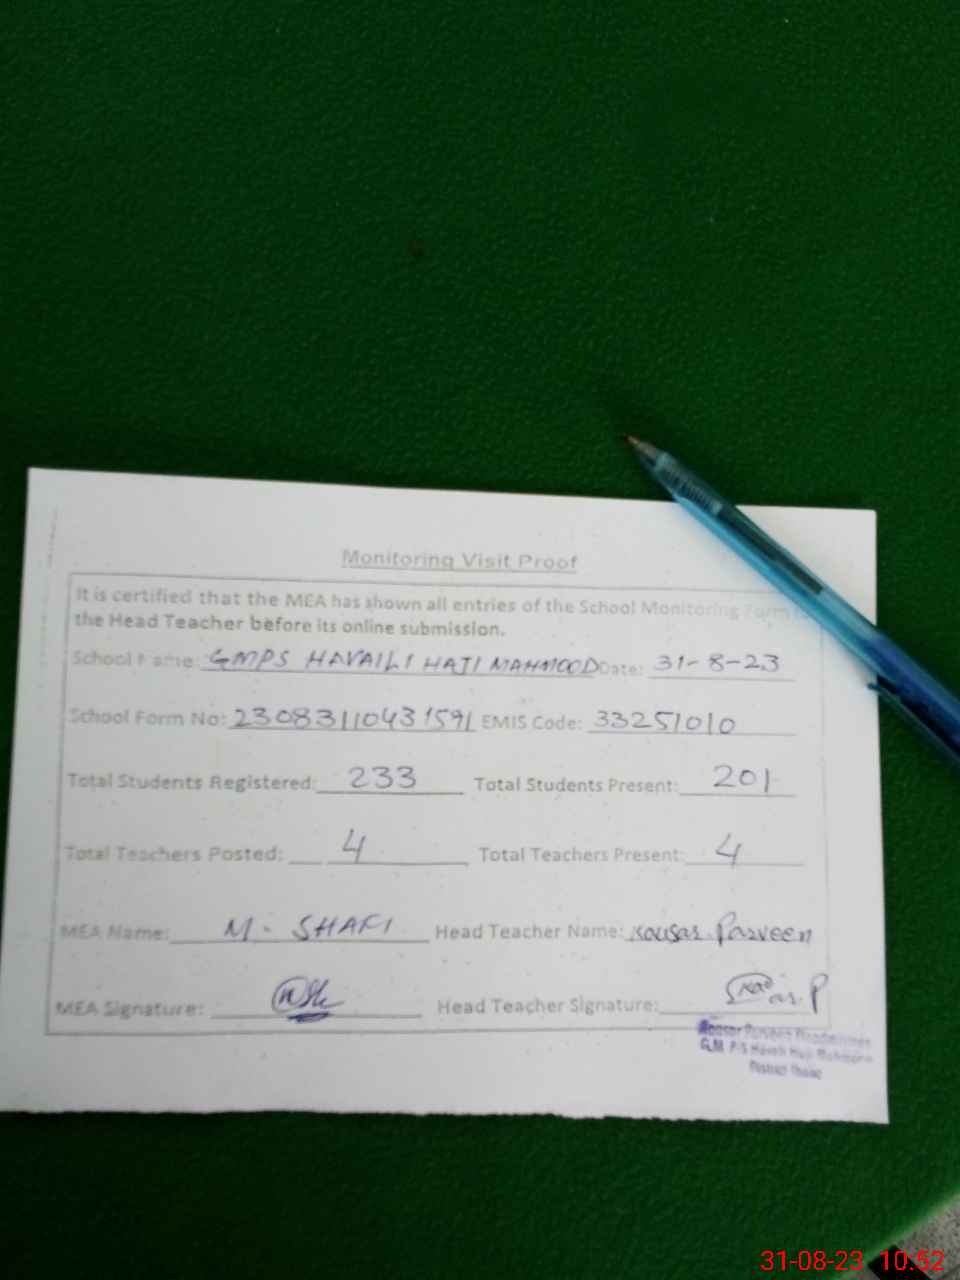 Monitoring Visit Proof
It is certified that the MEA has shown all entries of the School Monitoring Form to
the Head Teacher before its online submission.
School Name: GMPS HAVAILI HAJI MAHMOOD Date: 31-8-23
School Form No: 23083110431591 EMIS Code: 33251010
Total Students Registered: 233 Total Students Present: 201
Total Teachers Posted: 4 Total Teachers Present: 4
MEA Name: M. SHAFI Head Teacher Name: Kousar Parveen
MEA Signature: Head Teacher Signature:
Kousar Parveen Headmistress
G.M. P/S Havali Haji
District
31-08-23 10:52